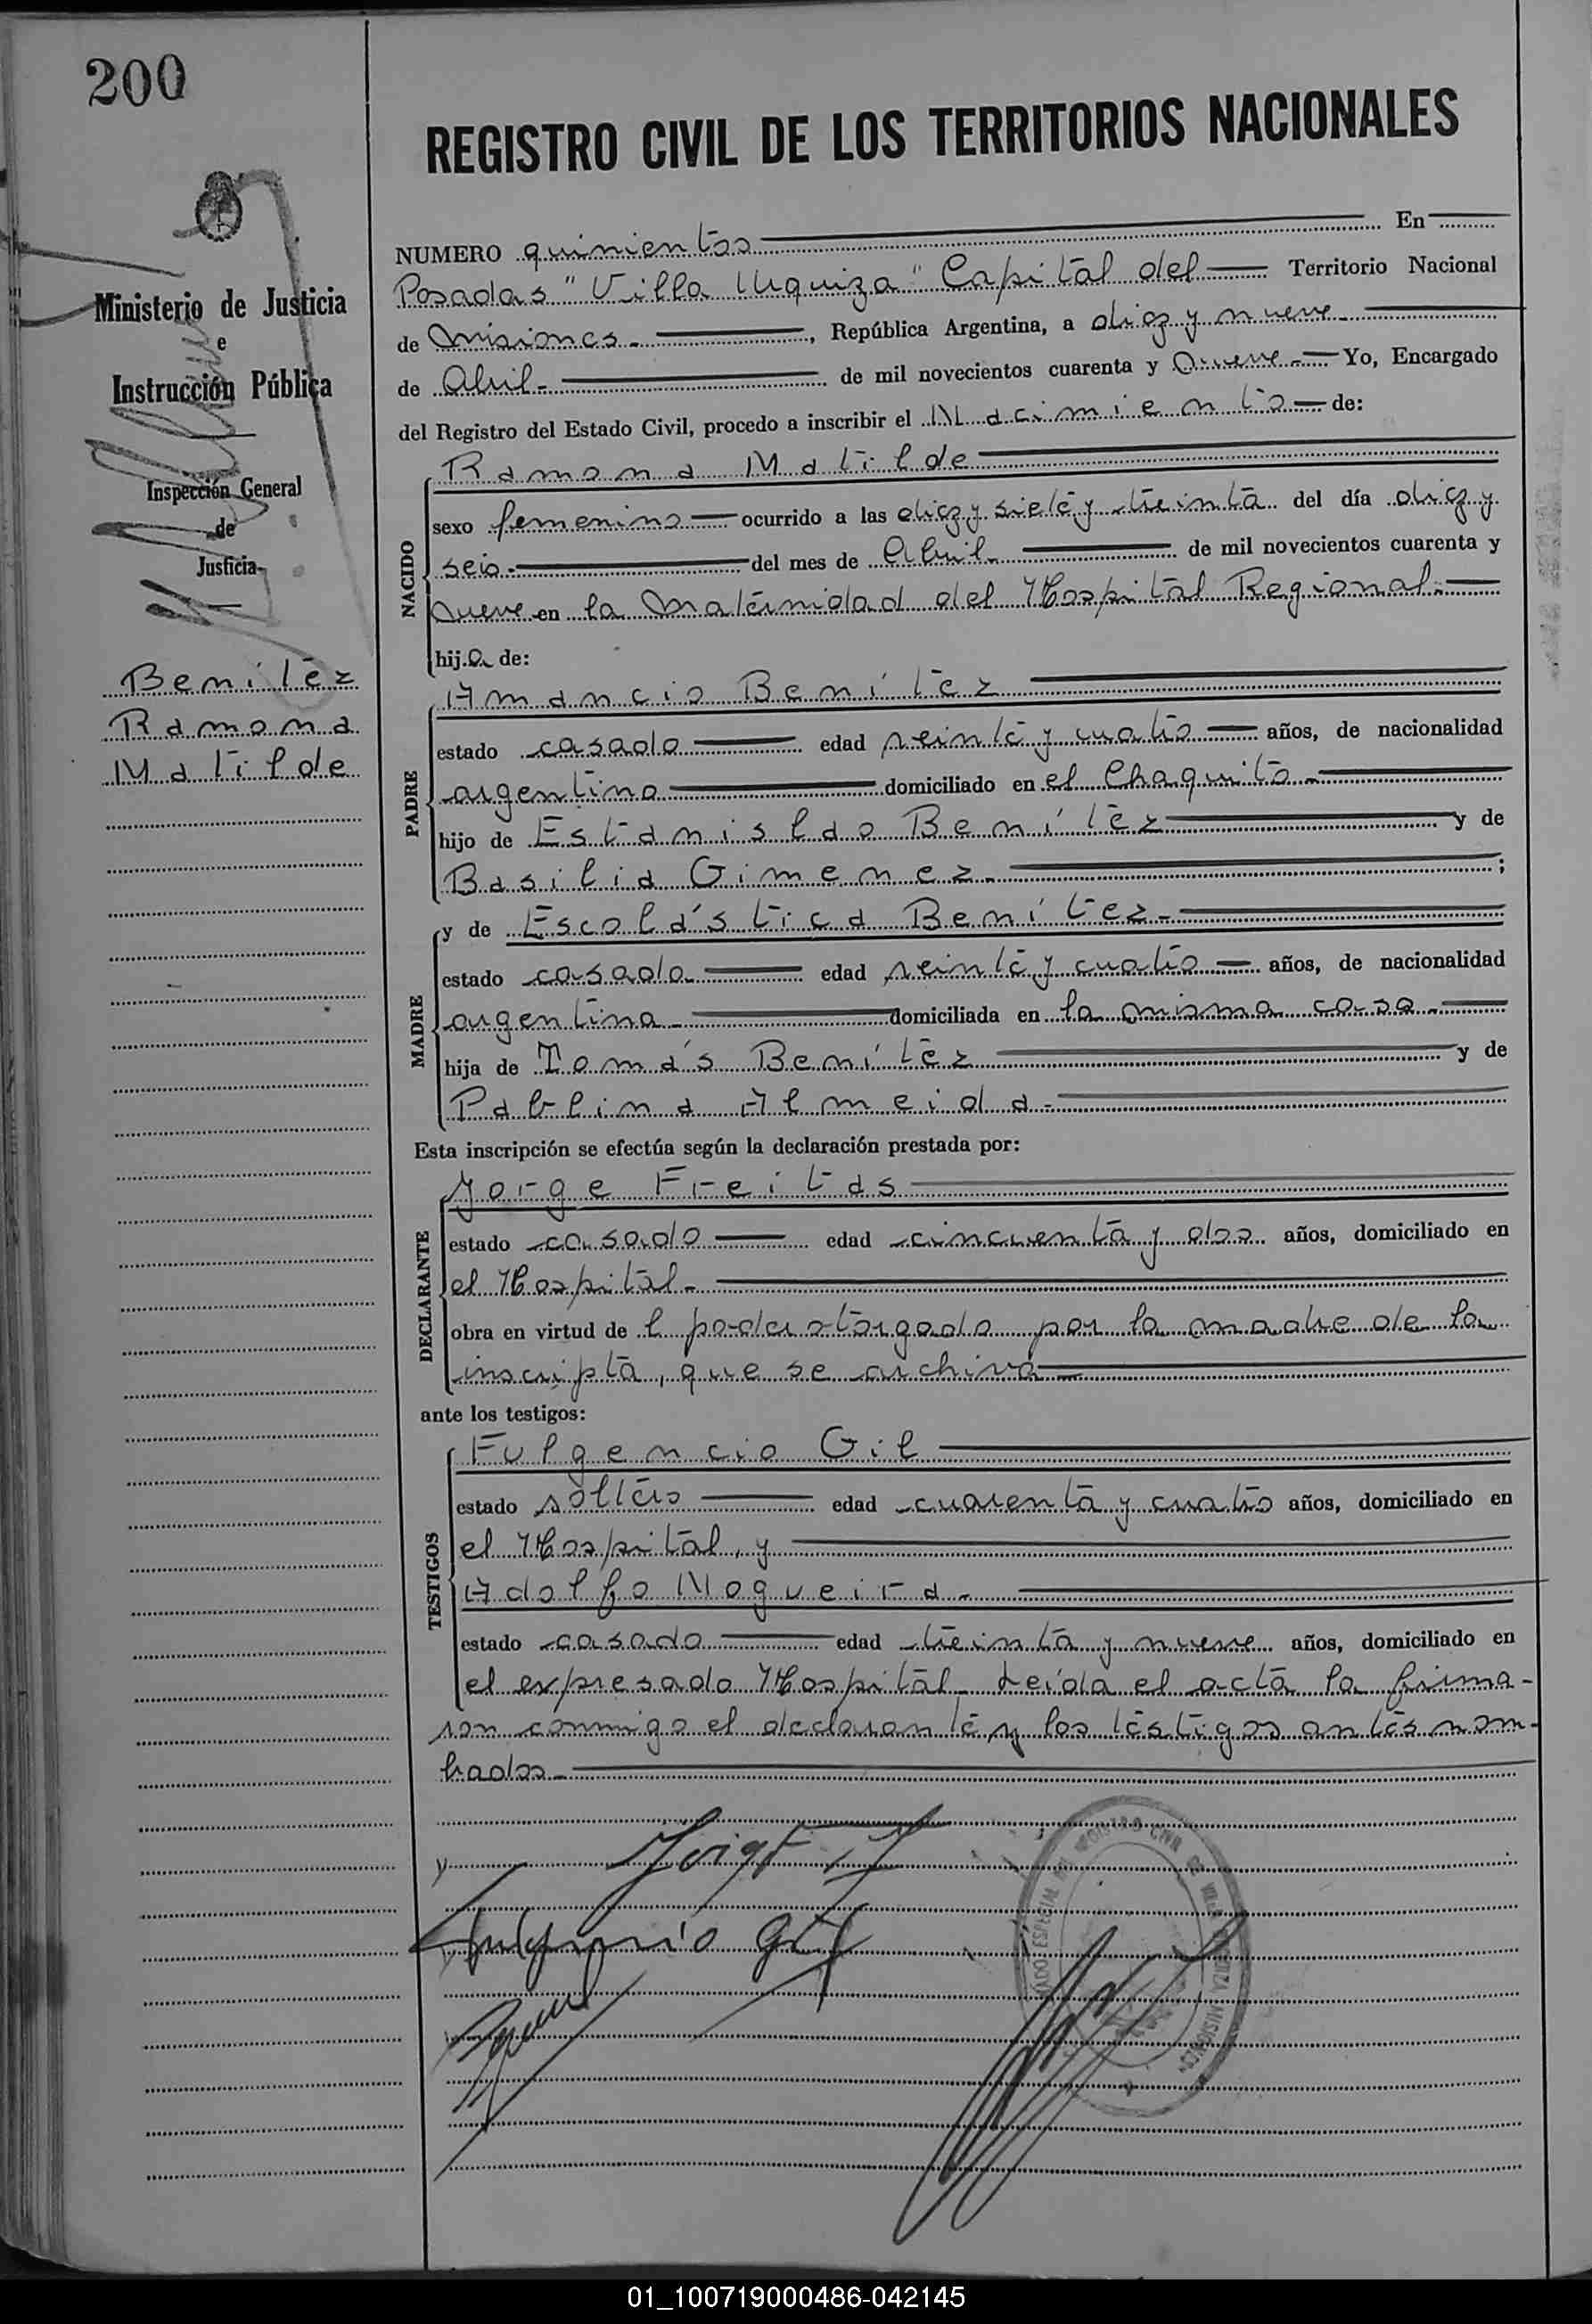 200
REGISTRO CIVIL DE LOS TERRITORIOS NACIONALES
Ministerio de Justicia
e
Instrucción Pública
Inspección General
de
Justicia
Benítez
Ramona
Matilde
NUMERO quinientos En
Posadas "Villa Urquiza" Capital del Territorio Nacional
de Misiones.-, República Argentina, a diez y nueve.-
de Abril.- de mil novecientos cuarenta y nueve.- Yo, Encargado
del Registro del Estado Civil, procedo a inscribir el Nacimiento de:
NACIDO
Ramona Matilde
sexo femenino ocurrido a las diez y siete y treinta del día diez y
seis.- del mes de Abril.- de mil novecientos cuarenta y
nueve en la Maternidad del Hospital Regional.-
hija de:
PADRE
Amancio Benítez
estado casado edad veinte y cuatro años, de nacionalidad
argentino domiciliado en el Chaquito.-
hijo de Estanislao Benítez y de
Basilia Gimenez.- ;
MADRE
y de Escolástica Benítez.-
estado casada edad veinte y cuatro años, de nacionalidad
argentina.- domiciliada en la misma casa.-
hija de Tomás Benítez y de
Pablina Almeida.-
Esta inscripción se efectúa según la declaración prestada por:
DECLARANTE
Jorge Freitas
estado casado edad cincuenta y dos años, domiciliado en
el Hospital.-
obra en virtud de l poder otorgado por la madre de la
inscripta, que se archiva.-
ante los testigos:
TESTIGOS
Fulgencio Gil
estado soltero edad cuarenta y cuatro años, domiciliado en
el Hospital, y
Adolfo Nogueira.-
estado casado edad treinta y nueve años, domiciliado en
el expresado Hospital. Leída el acta la firma-
ron conmigo el declarante y los testigos antes nom-
brados.-
Jorge
Fulgencio Gil
ESPECIAL DEL REGISTRO CIVIL DE VILLA URQUIZA MISIONES
01_100719000486-042145